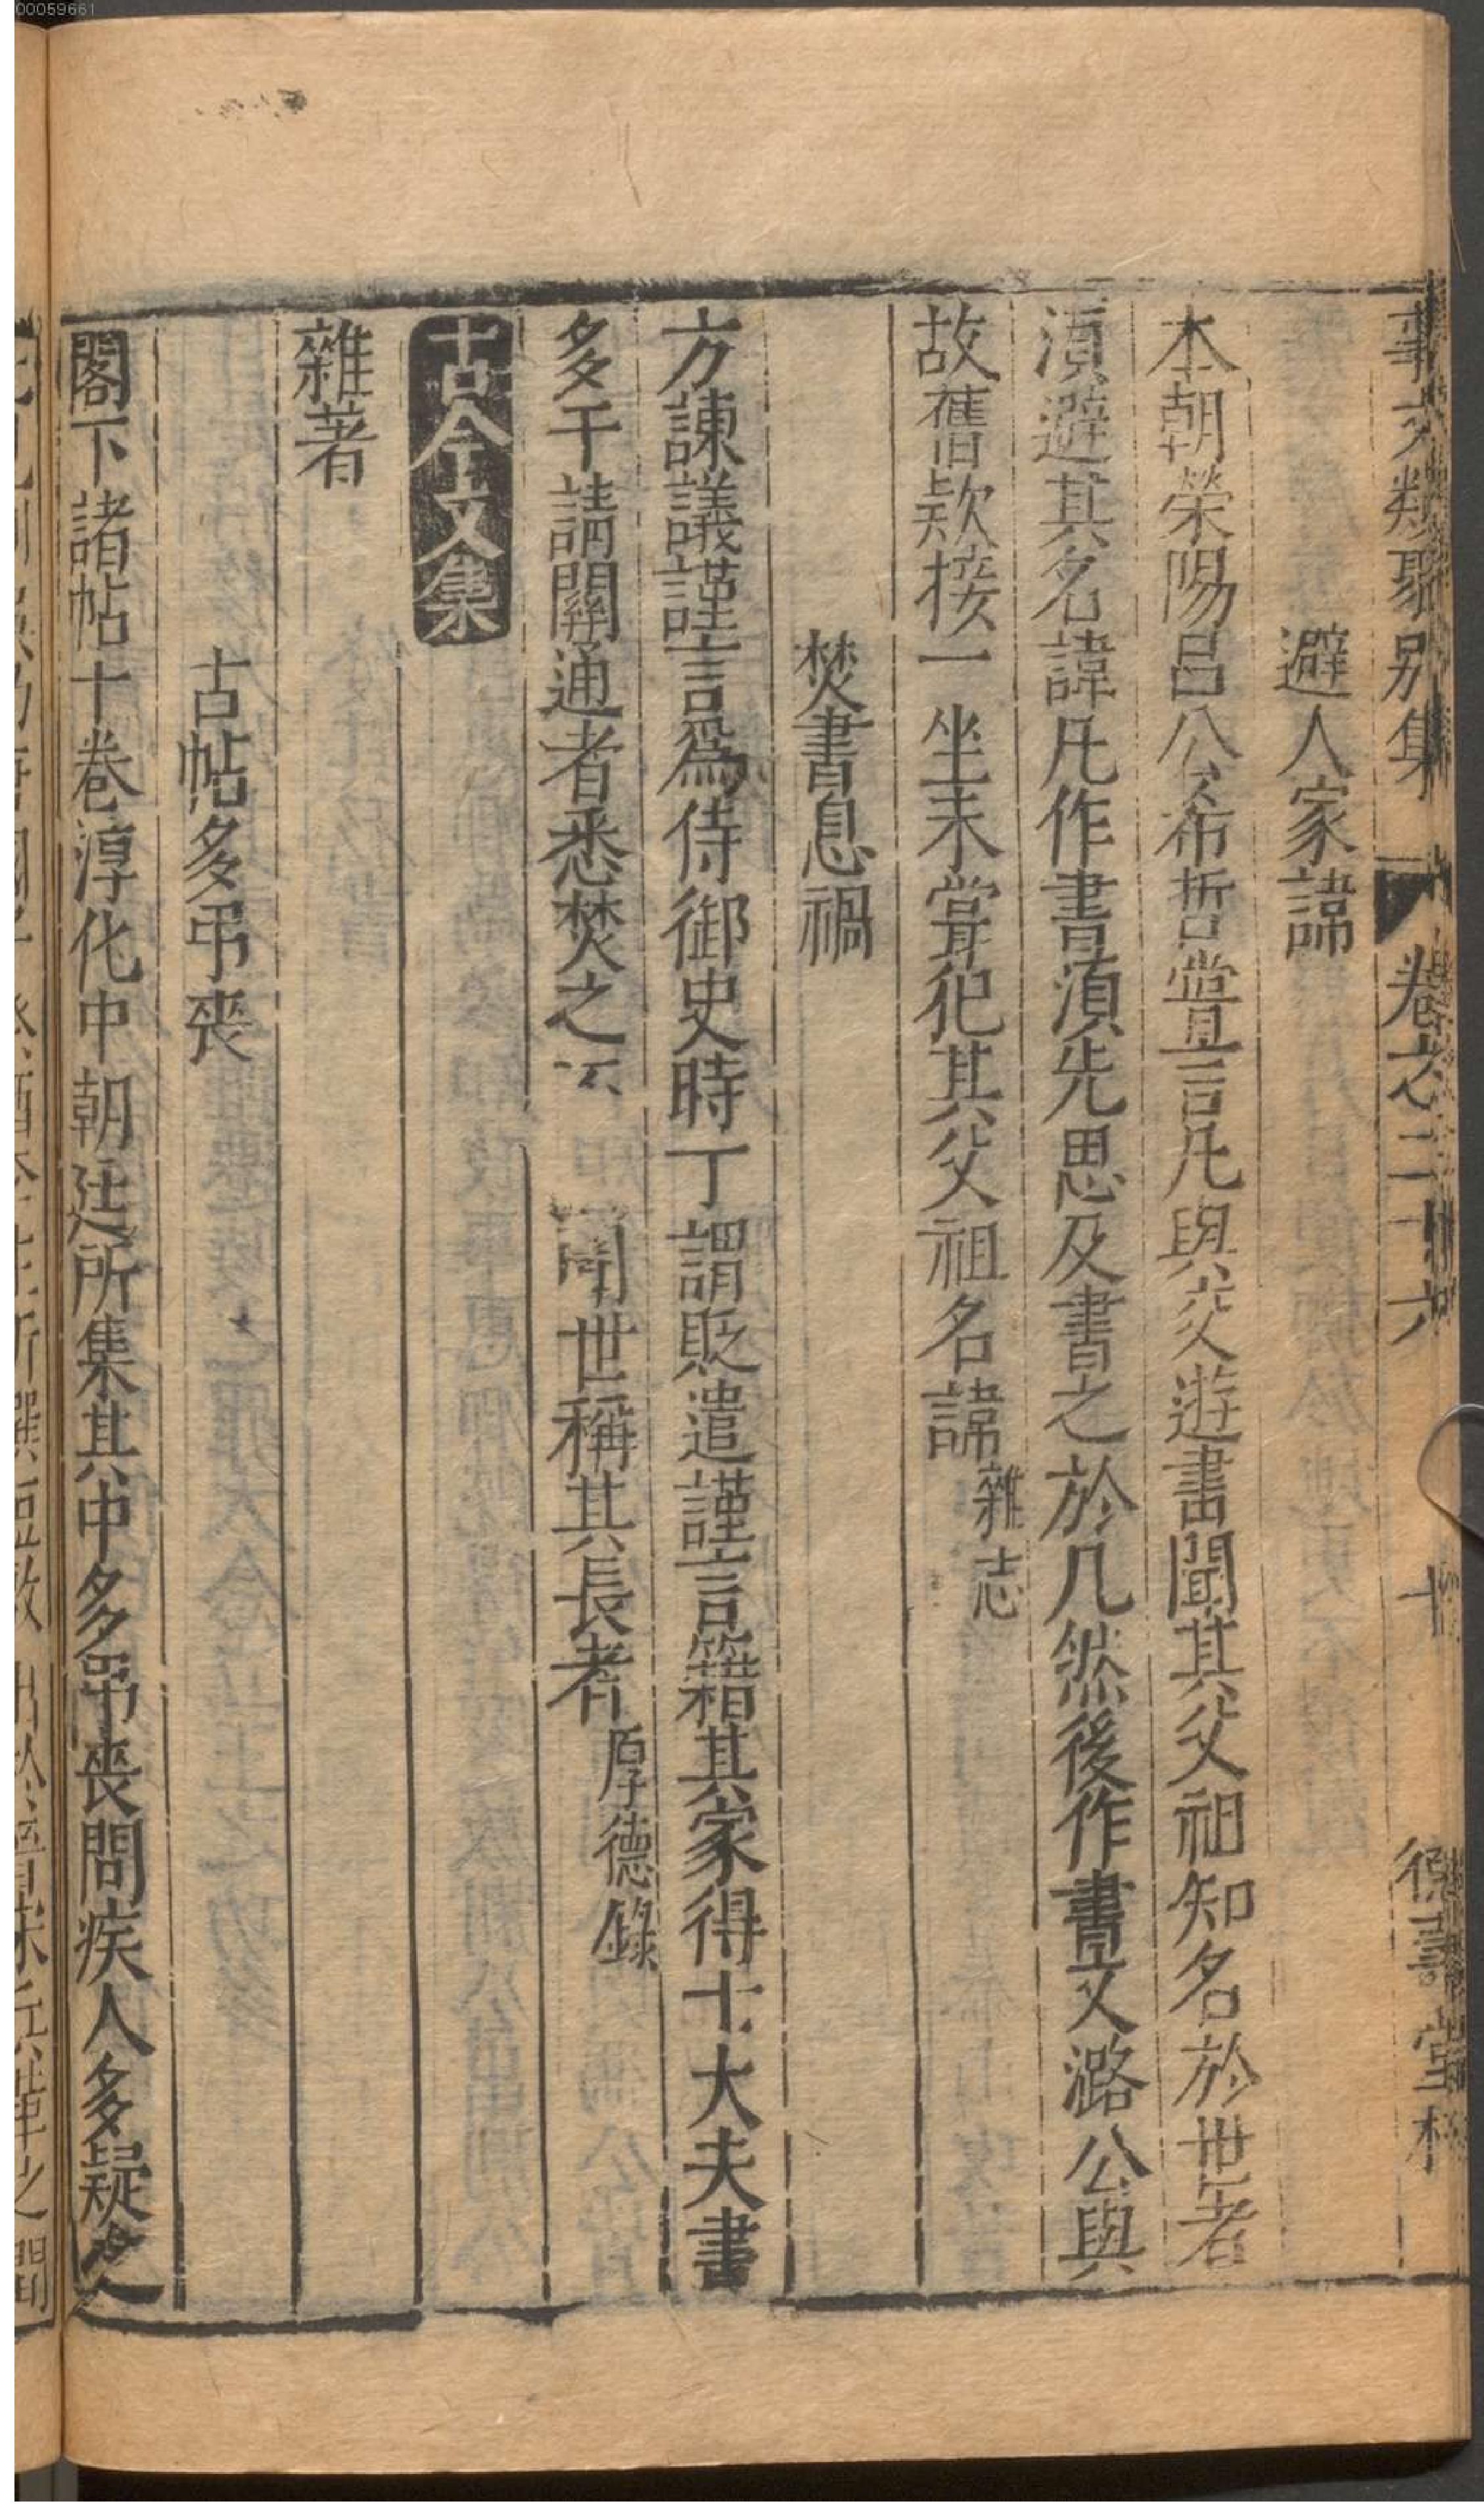 00059661
事文類聚別集 卷之二十六 十 德壽堂梓
避人家諱
本朝榮陽呂公希哲嘗言凡與交遊書聞其父祖知名於世者
湏避其名諱凡作書湏先思及書之於几然後作書文潞公與
故舊欵接一坐未嘗犯其父祖名諱雜志
焚書息禍
方諫議謹言爲侍御史時丁謂貶遣謹言籍其家得士大夫書
多干請關通者悉焚之不 聞世稱其長者厚德錄
古今文集
雜著
古帖多弔喪
閣下諸帖十卷淳化中朝廷所集其中多弔喪問疾人多疑之